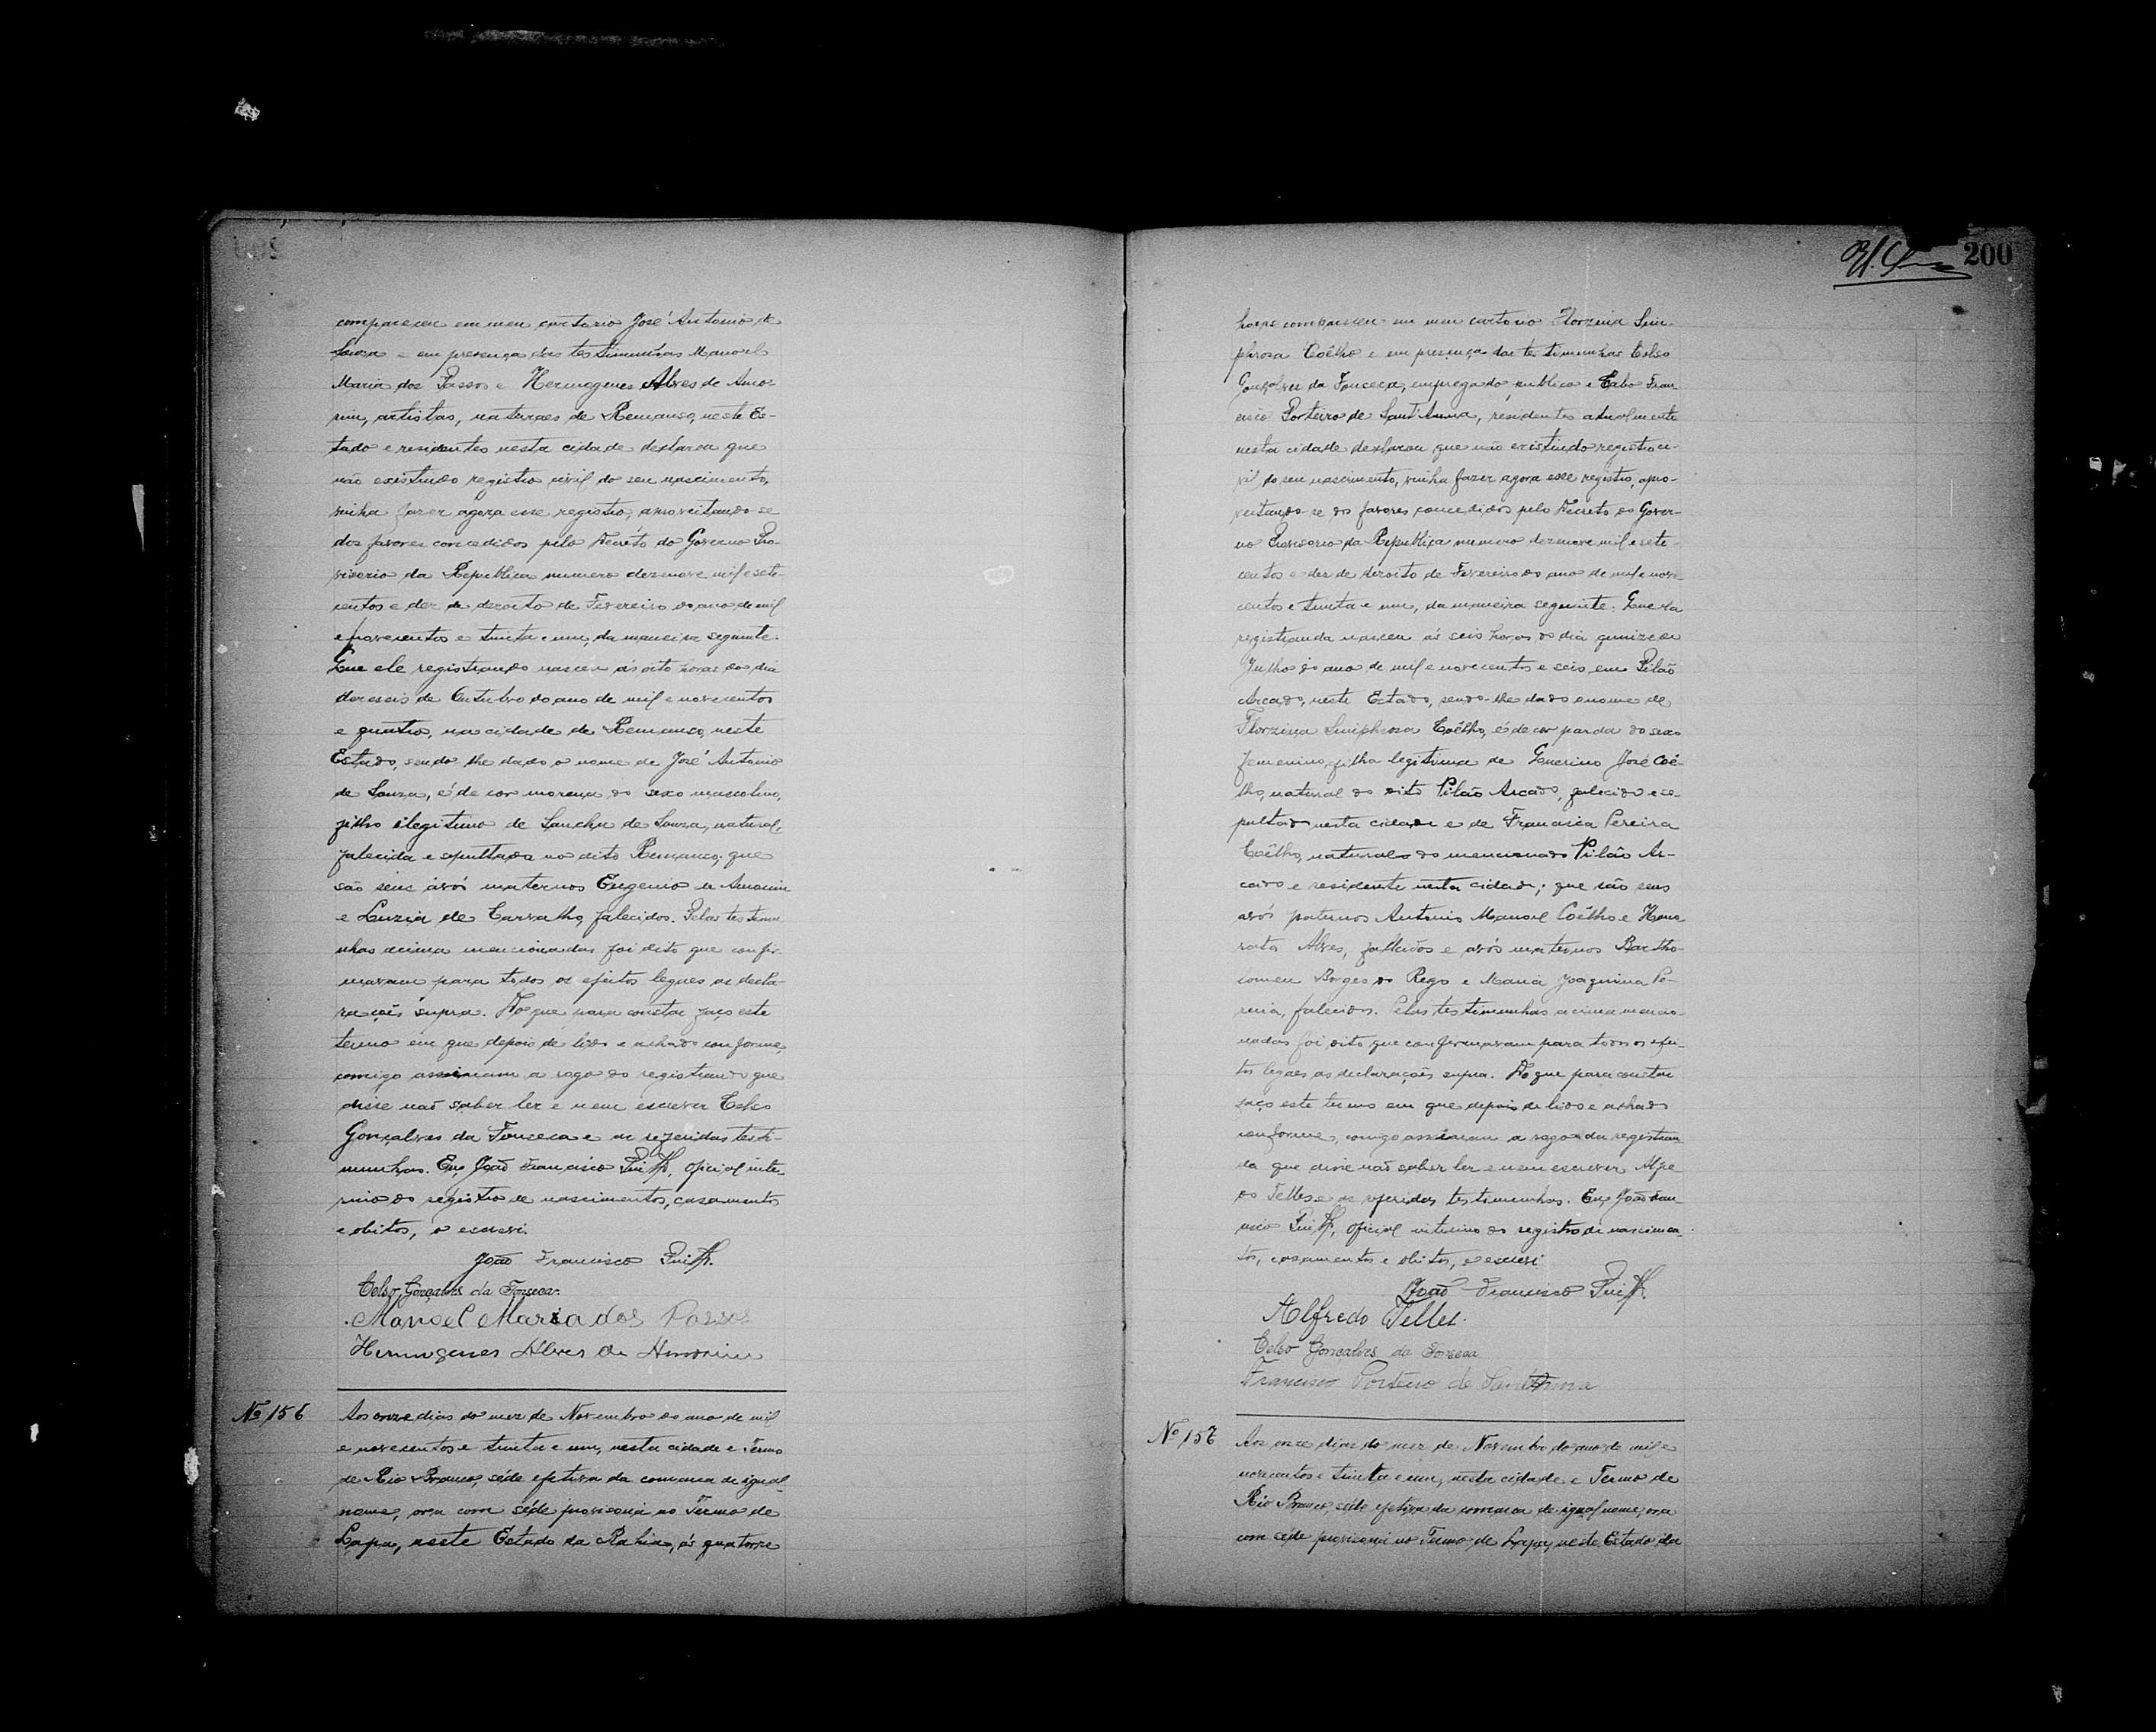 compareceu em meu cartorio José Antonio de
Souza e em presença das testimunhas Manoel
Maria dos Passos e Hermogenes Alves de Amo-
rim, artistas, naturaes de Remanso, neste Es-
tado e residentes nesta cidade declarou que
não existindo registro civil do seu nascimento,
vinha fazer agora esse registro, aproveitando-se
dos favores concedidos pelo Decreto do Governo Pro-
visorio da Republica numero dezenove mil e sete-
centos e dez de dezoito de Fevereiro do ano de mil
e novecentos e trinta e um, da maneira seguinte:
Que ele registrando nasceu ás oito horas do dia
dezesseis de Outubro do ano de mil e novecentos
e quatro, na cidade de Remanso, neste
Estado, sendo-lhe dado o nome de José Antonio
de Souza, é de cor morena, do sexo masculino,
filho ilegitimo de Sancha de Souza, natural,
falecida e sepultada no dito Remanso; que
são seus avós maternos Eugenio de Amorim
e Luzia de Carvalho, falecidos. Pelas testemu
nhas acima mencionadas foi dito que confir-
mavam para todos os efeitos legaes as decla-
rações supra. Do que para constar faço este
termo em que depois de lido e achado conforme,
comigo assinam a rogo do registrando que
disse não saber ler e nem escrever Celso
Gonçalves da Fonseca e as referidas testi-
munhas. Eu, João Francisco, oficial inte-
rino do registro de nascimentos, casamentos
e obitos, o escrevi.
João Francisco
Celso Gonçalves da Fonseca.
Manoel Maria dos Passos
Hermogenes Alves de Amorim
Nº 156
Aos onze dias do mez de Novembro do ano de mil
e novecentos e trinta e um, nesta cidade e Termo
de Rio Branco, séde efetiva da comarca de igual
nome, ora com séde provisoria no Termo de
Lapa, neste Estado da Bahia, ás quatorze
200
horas compareceu em meu cartorio Florzina Sim-
phrosa Coêlho e em presença das testimunhas Celso
Gonçalves da Fonseca, empregado publico e Cabo Fran
cisco Porteiro de Sant'Anna, residentes atualmente
nesta cidade declarou que não existindo registro ci-
vil do seu nascimento, vinha fazer agora esse registro, apro-
veitando-se dos favores concedidos pelo Decreto do Gover-
no Provisorio da Republica numero dezenove mil e sete-
centos e dez de dezoito de Fevereiro do ano de mil e nove-
centos e trinta e um, da maneira seguinte: Que ela
registranda nasceu ás seis horas do dia quinze de
Julho do ano de mil e novecentos e seis em Pilão
Arcado, neste Estado, sendo-lhe dado o nome de
Florzina Simphrosa Coêlho, é de cor parda do sexo
femenino, filha legitima de José Coê-
lho, natural do dito Pilão Arcado, falecido e se-
pultado nesta cidade e de Francisca Pereira
Coêlho, natural do mencionado Pilão Ar-
cado e residente nesta cidade; que são seus
avós paternos Antonio Manoel Coêlho e Hono
rata Alves, falecidos e avós maternos Bartho-
lomeu Borges do Rego e Maria Joaquina Pe-
reira, falecidos. Pelas testimunhas acima mencio-
nadas foi dito que confirmavam para todos os efei-
tos legaes as declarações supra. Do que para constar
faço este termo em que depois de lido e achado
conforme, comigo assinam a rogo da registran
da que disse não saber ler e nem escrever Alfre
do Telles e as referidas testimunhas. Eu, João Fran-
cisco, oficial interino do registro de nascimen-
tos, casamentos e obitos, o escrevi
João Francisco
Alfredo Telles.
Celso Gonçalves da Fonseca
Francisco Porteiro de Sant'Anna
Nº 157
Aos onze dias do mez de Novembro do ano de mil e
novecentos e trinta e um, nesta cidade e Termo de
Rio Branco, séde efetiva da comarca de igual nome, ora
com séde provisoria no Termo de Lapa, neste Estado da